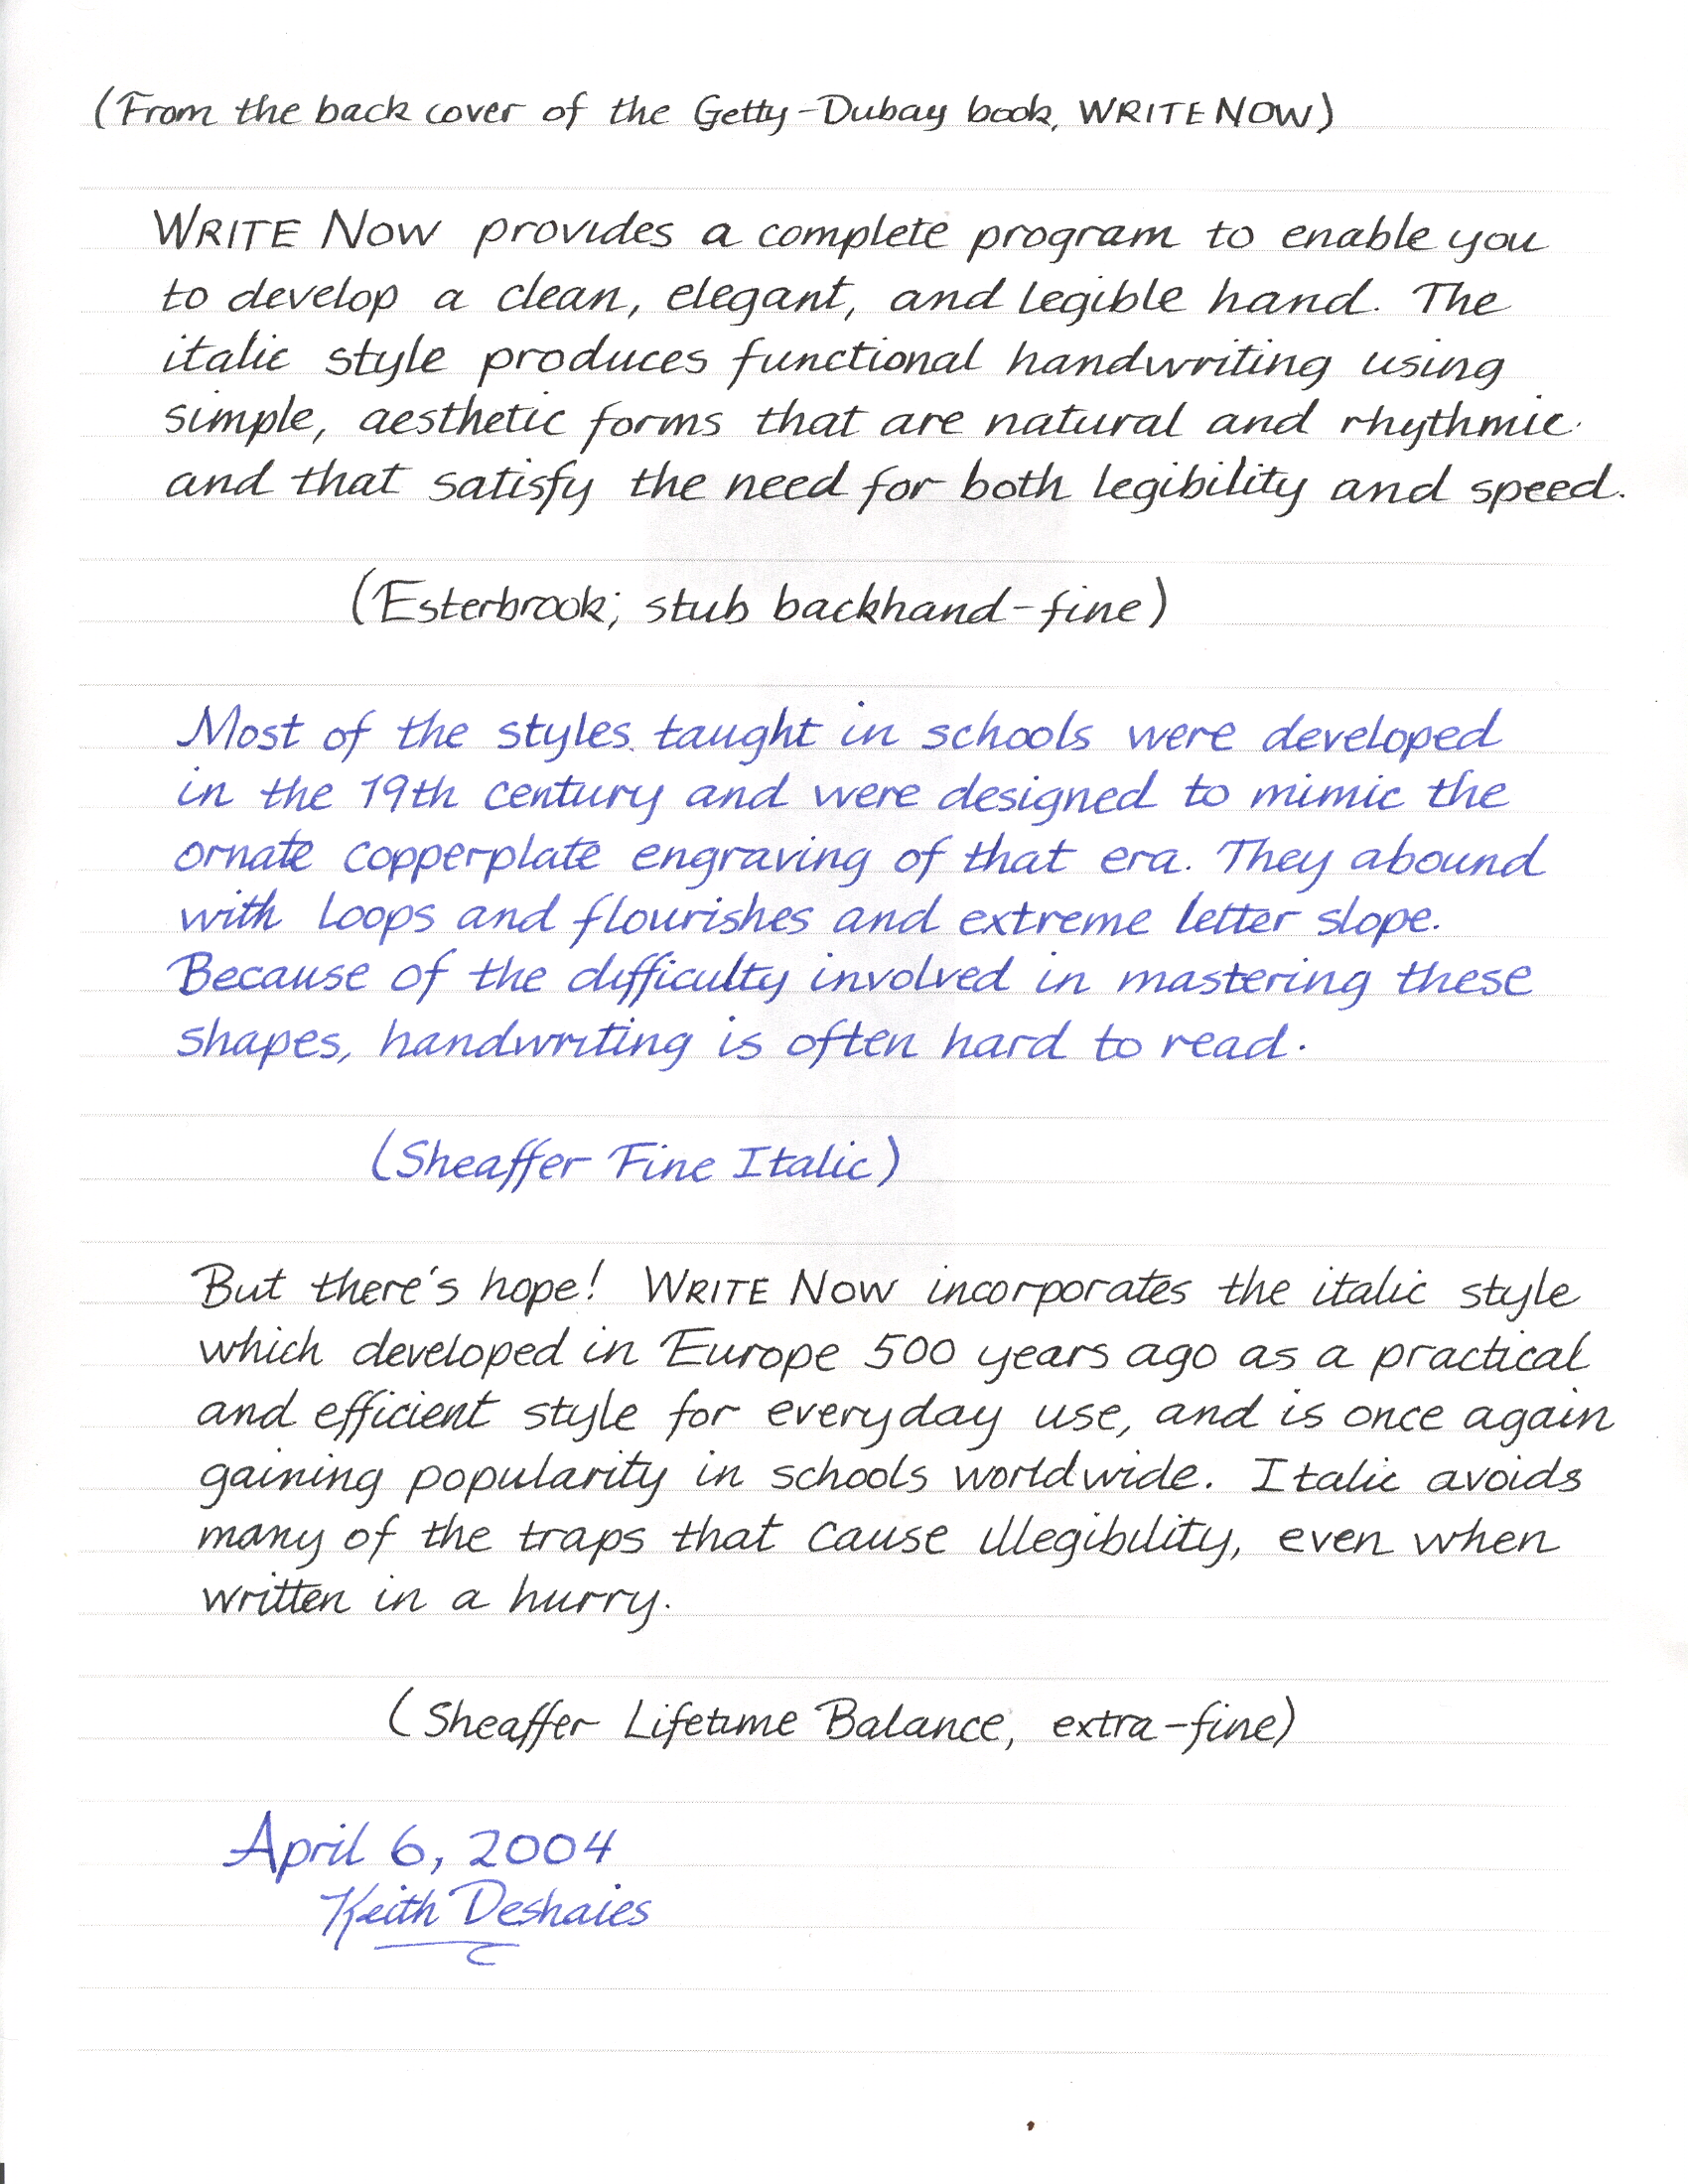 (From the back cover of the Getty-Dubay book, WRITE NOW)
WRITE NOW provides a complete program to enable you
to develop a clean, elegant, and legible hand. The
italic style produces functional handwriting using
simple, aesthetic forms that are natural and rhythmic
and that satisfy the need for both legibility and speed.
(Esterbrook; stub backhand-fine)
Most of the styles taught in schools were developed
in the 19th century and were designed to mimic the
ornate copperplate engraving of that era. They abound
with loops and flourishes and extreme letter slope.
Because of the difficulty involved in mastering these
shapes, handwriting is often hard to read.
(Sheaffer Fine Italic)
But there's hope! WRITE NOW incorporates the italic style
which developed in Europe 500 years ago as a practical
and efficient style for everyday use, and is once again
gaining popularity in schools worldwide. Italic avoids
many of the traps that cause illegibility, even when
written in a hurry.
(Sheaffer Lifetime Balance, extra-fine)
April 6, 2004
Keith Deshaies